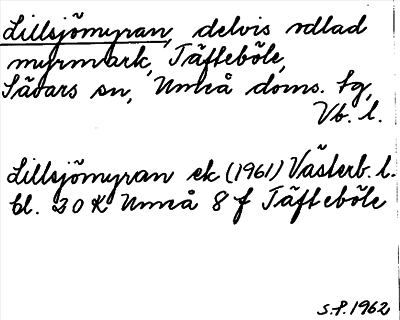 Lillsjömyran, delvis odlad
myrmark, Täfteböle,
Sävars sn, Umeå doms. tg,
Vb. l.
Lillsjömyran ek (1961) Västerb. l.
bl. 20 K Umeå 8 f Täfteböle
S.P. 1962